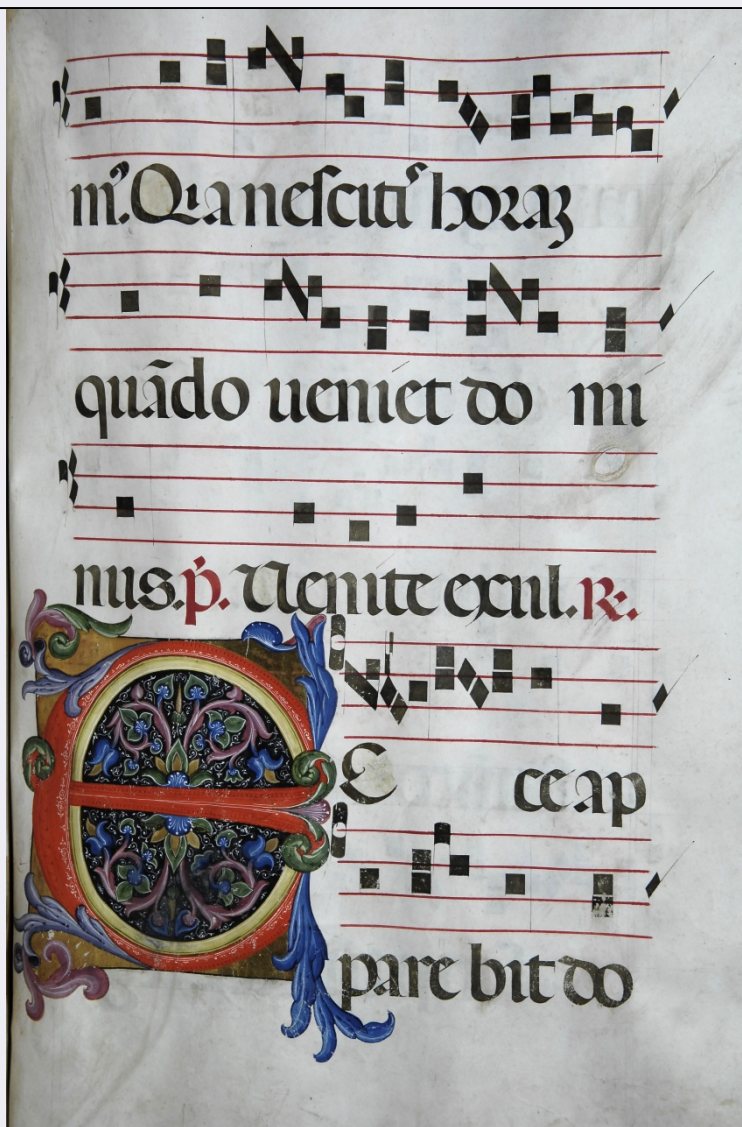 m⁹. Quia nescitis horaʒ
quādo ueniet do mi
nus. p̄. Uenite exul. R̷.
E cce ap
pare bit do